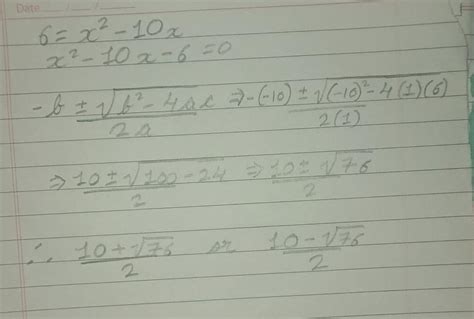 Date
6 = x² - 10x
x² - 10x - 6 = 0
-b ± √b² - 4ac / 2a ⇒ -(-10) ± √(-10)² - 4(1)(6) / 2(1)
⇒ 10 ± √100 - 24 / 2 ⇒ 10 ± √76 / 2
∴ 10 + √76 / 2 or 10 - √76 / 2